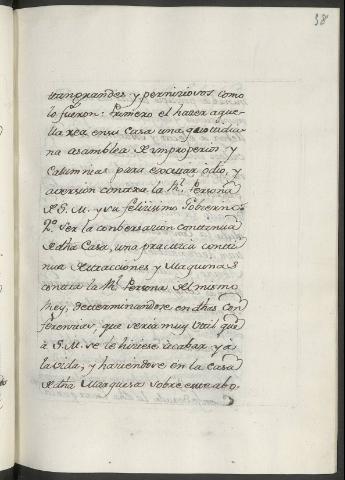 38
tan grandes y perniziosos como
lo fueron: Primero el hazer aque-
lla rea en su Casa una quotidia-
na asamblea de improperios y
Calumnias para excitar odio, y
aversion contra la Rl. Persona
de S. M. y su felizisimo Gobierno:
2º. Ser la conbersación continua
de dha Casa, una practica conti-
nua detracciones y Maquinas
contra la Rl. Persona del mismo
Rey, determinandose en dhas Con-
ferencias, que seria muy util que
à S. M. se le hiziese acabar ya
la vida; y haviendose en la Casa
de dha Marquesa sobre este abo-